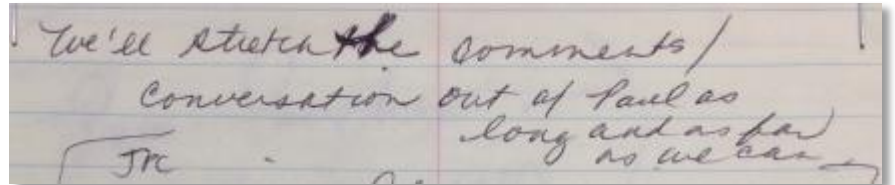 We'll stretch the comments/
conversation out of Paul as
long and as far
as we can
Jrc